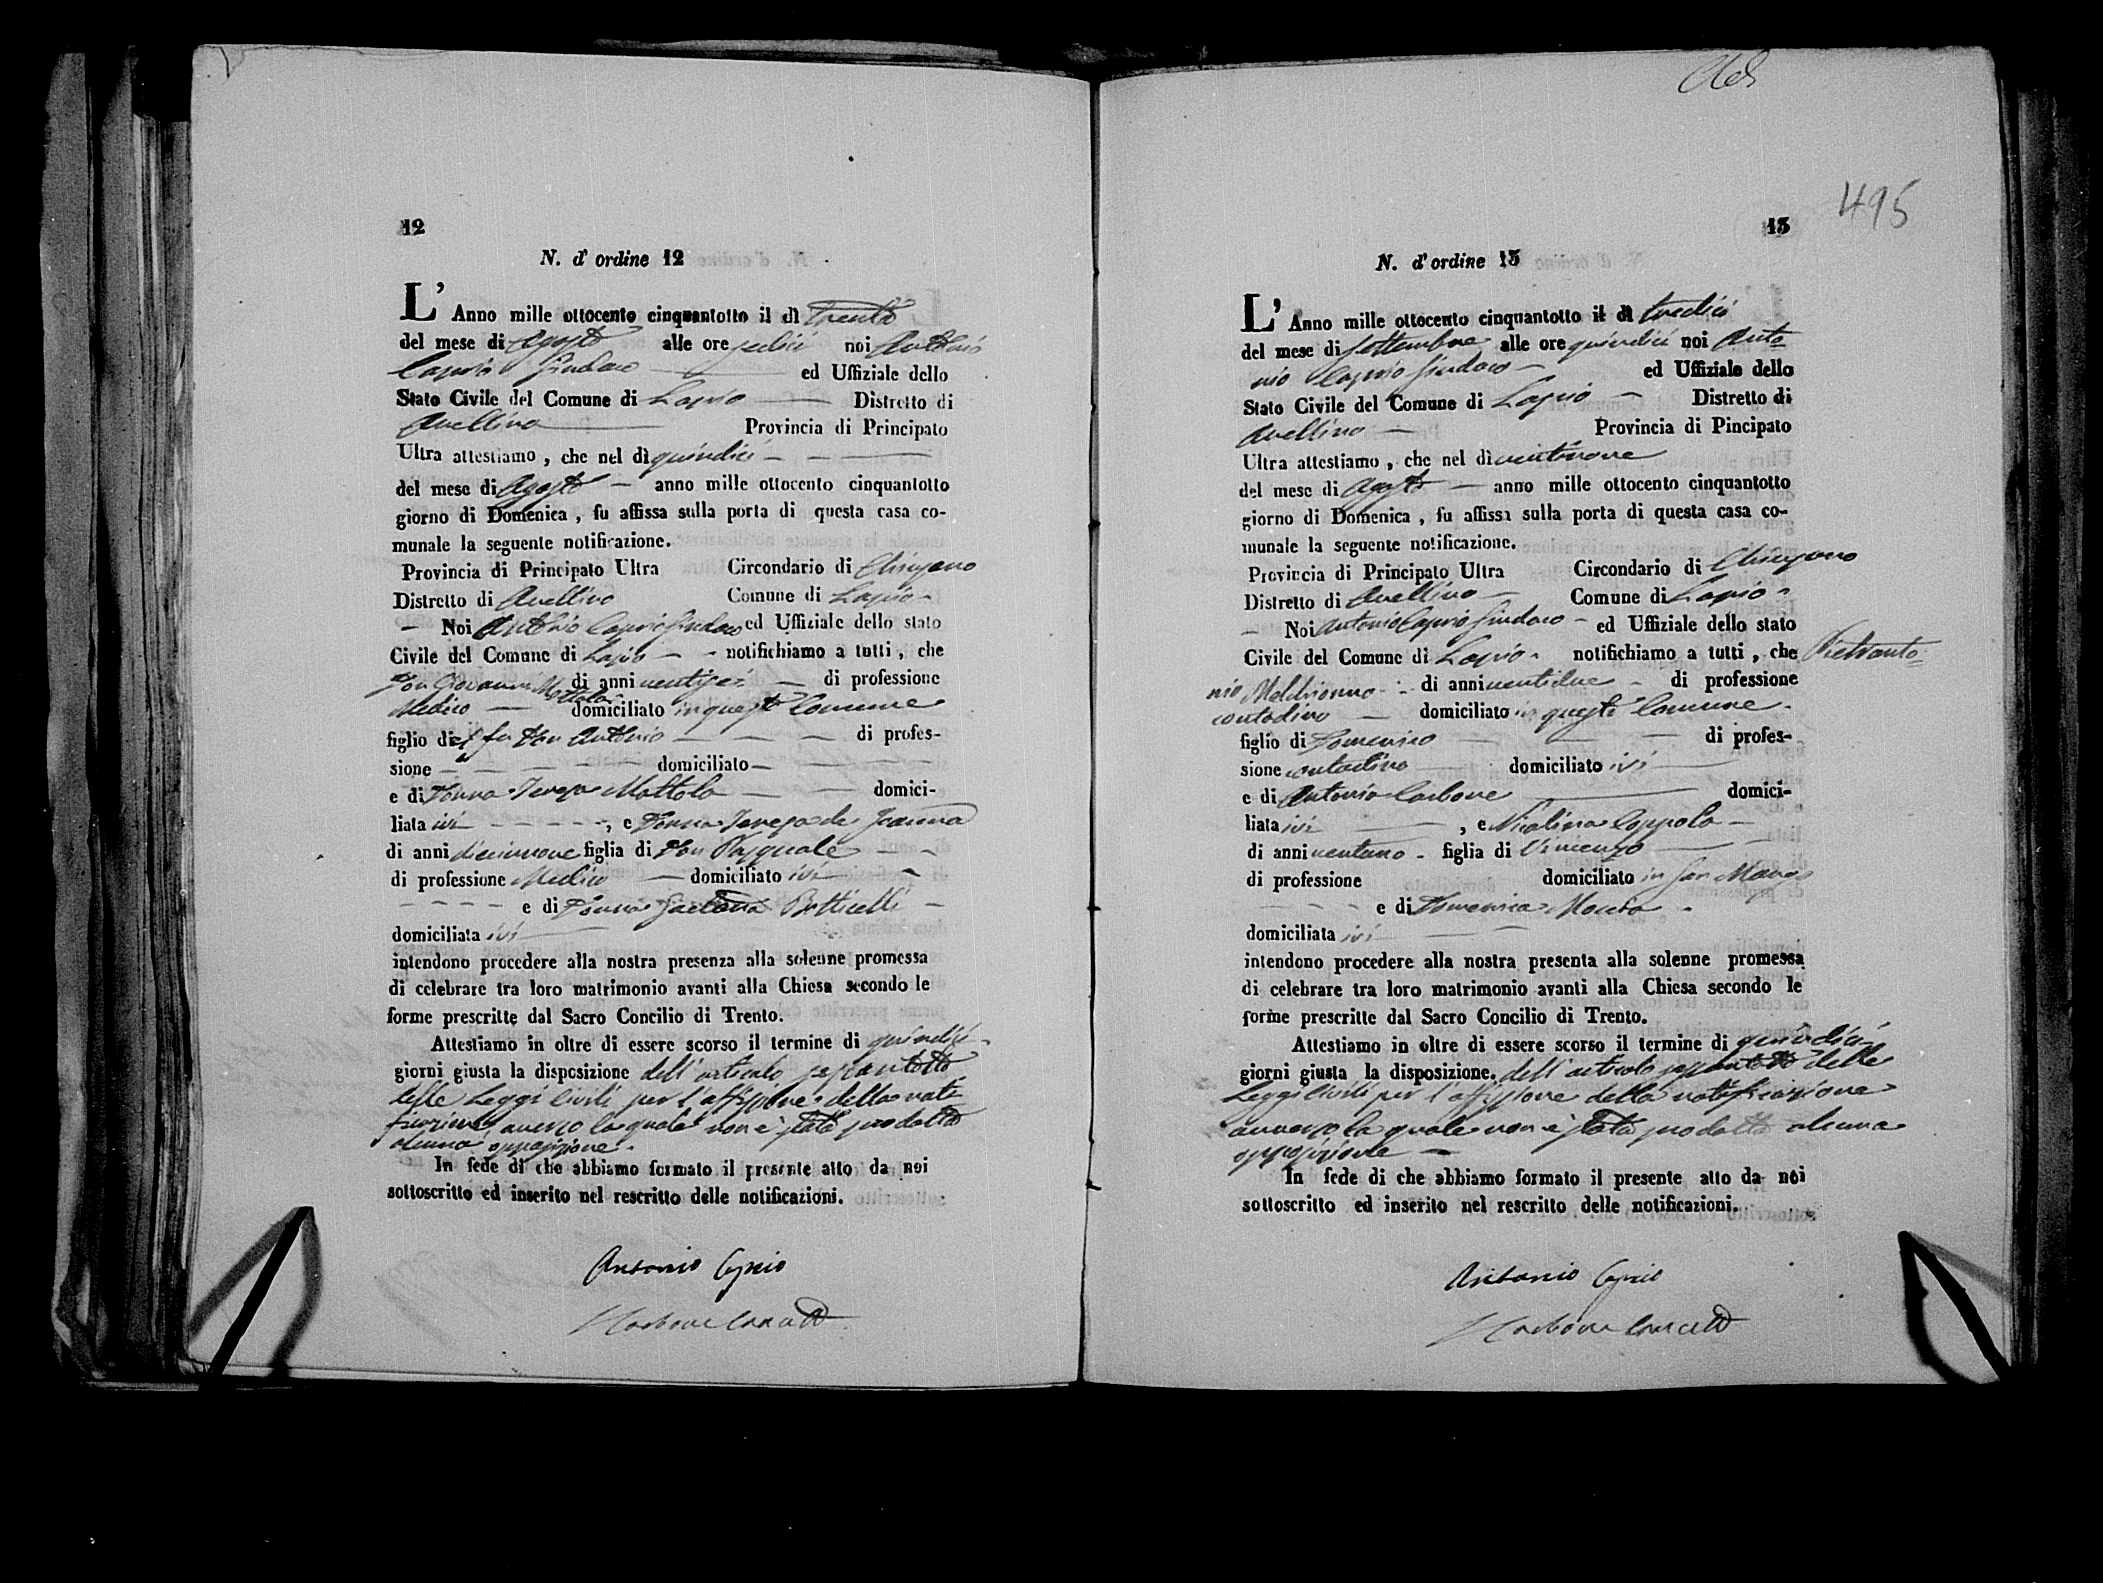 12
N. d' ordine 12
L' Anno mille ottocento cinquantotto il dì trenta
del mese di Agosto alle ore sedici noi Antonio
Caprio Sindaco ed Uffiziale dello
Stato Civile del Comune di Lapio Distretto di
Avellino Provincia di Principato
Ultra attestiamo, che nel dì quindici
del mese di Agosto anno mille ottocento cinquantotto
giorno di Domenica, fu affissa sulla porta di questa casa co-
munale la seguente notificazione.
Provincia di Principato Ultra Circondario di Chiusano
Distretto di Avellino Comune di Lapio
Noi Antonio Caprio Sindaco ed Uffiziale dello stato
Civile del Comune di Lapio notifichiamo a tutti, che
Don Giovanni Mottola di anni ventisei di professione
Medico domiciliato in questo Comune
figlio del fu Don Antonio di profes-
sione domiciliato
e di Donna Teresa Mottola domici-
liata ivi, e Donna Teresa de Joanna
di anni diciannove figlia di Don Pasquale
di professione Medico domiciliato ivi
e di Donna Gaetana Botticelli
domiciliata ivi
intendono procedere alla nostra presenza alla solenne promessa
di celebrare tra loro matrimonio avanti alla Chiesa secondo le
forme prescritte dal Sacro Concilio di Trento.
Attestiamo in oltre di essere scorso il termine di quindici
giorni giusta la disposizione dell'articolo sessantotto
delle Leggi Civili per l'affissione della noti
ficazione avverso la quale non è stata prodotta
alcuna opposizione.
In fede di che abbiamo formato il presente atto da noi
sottoscritto ed inserito nel rescritto delle notificazioni.
Antonio Caprio
Carbone
495
13
N. d' ordine 13
L' Anno mille ottocento cinquantotto il dì tredici
del mese di Settembre alle ore quindici noi Anto
nio Caprio Sindaco ed Uffiziale dello
Stato Civile del Comune di Lapio Distretto di
Avellino Provincia di Pincipato
Ultra attestiamo, che nel dì ventinove
del mese di Agosto anno mille ottocento cinquantotto
giorno di Domenica, fu affissa sulla porta di questa casa co-
munale la seguente notificazione.
Provincia di Principato Ultra Circondario di Chiusano
Distretto di Avellino Comune di Lapio
Noi Antonio Caprio Sindaco ed Uffiziale dello stato
Civile del Comune di Lapio notifichiamo a tutti, che Pietranto
nio Meldrionno di anni ventidue di professione
contadino domiciliato in questo Comune
figlio di Domenico di profes-
sione contadino domiciliato ivi
e di Antonia Carbone domici-
liata ivi, e Nicolina Coppola
di anni ventuno figlia di Vincenzo
di professione domiciliato in San Mango
e di Domenica
domiciliata ivi
intendono procedere alla nostra presenta alla solenne promessa
di celebrare tra loro matrimonio avanti alla Chiesa secondo le
forme prescritte dal Sacro Concilio di Trento.
Attestiamo in oltre di essere scorso il termine di quindici
giorni giusta la disposizione. dell'articolo sessantotto delle
Leggi Civili per l'affissione della notificazione
avverso la quale non è stata prodotta alcuna
opposizione
In fede di che abbiamo formato il presente atto da noi
sottoscritto ed inserito nel rescritto delle notificazioni.
Antonio Caprio
Carbone